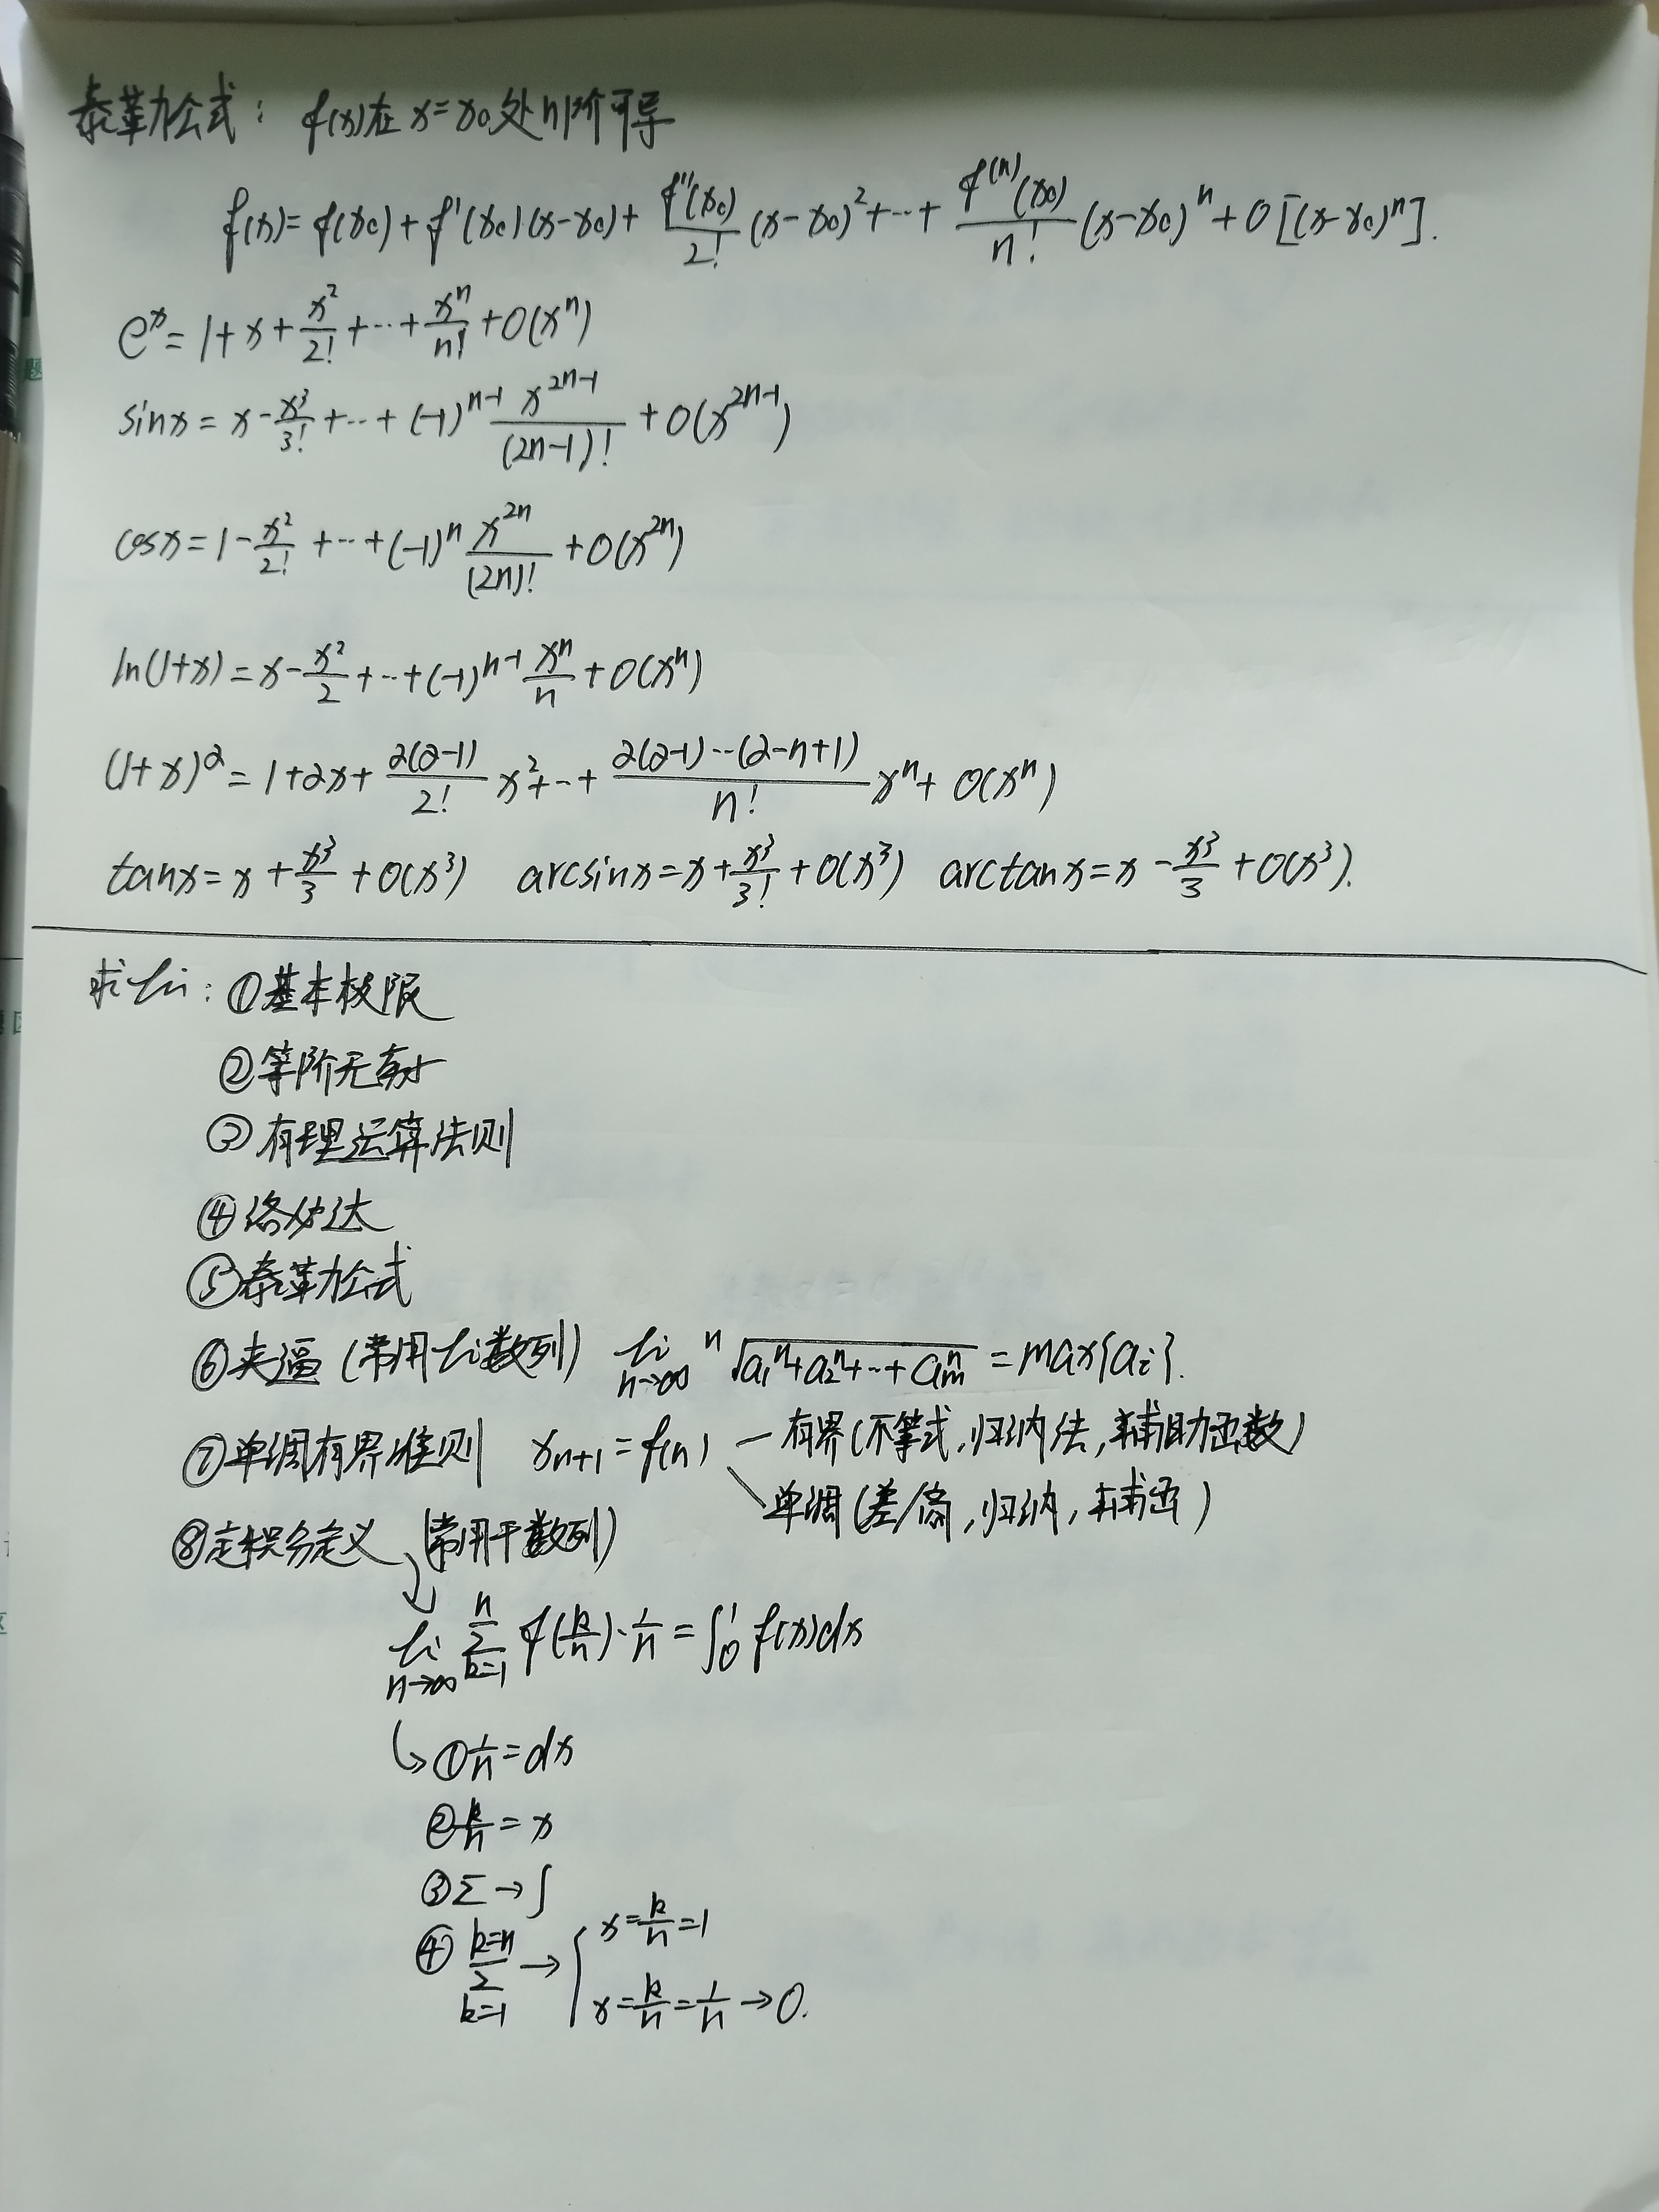 泰勒公式: f(x)在x=x₀处n阶可导
f(x)=f(x₀)+f'(x₀)(x-x₀)+\frac{f''(x₀)}{2!}(x-x₀)²+…+\frac{f^{(n)}(x₀)}{n!}(x-x₀)^n+o[(x-x₀)^n].
e^x=1+x+\frac{x²}{2!}+…+\frac{x^n}{n!}+o(x^n)
sinx=x-\frac{x³}{3!}+…+(-1)^{n-1}\frac{x^{2n-1}}{(2n-1)!}+o(x^{2n-1})
cosx=1-\frac{x²}{2!}+…+(-1)^n\frac{x^{2n}}{(2n)!}+o(x^{2n})
ln(1+x)=x-\frac{x²}{2}+…+(-1)^{n-1}\frac{x^n}{n}+o(x^n)
(1+x)^α=1+αx+\frac{α(α-1)}{2!}x²+…+\frac{α(α-1)…(α-n+1)}{n!}x^n+o(x^n)
tanx=x+\frac{x³}{3}+o(x³) arcsinx=x+\frac{x³}{3!}+o(x³) arctanx=x-\frac{x³}{3}+o(x³).
求lim: ①基本极限
②等阶无穷小
③有理运算法则
④洛必达
⑤泰勒公式
⑥夹逼(常用于数列) lim_{n→∞} \sqrt[n]{a₁^n+a₂^n+…+a_m^n}=max{a_i}.
⑦单调有界准则 x_{n+1}=f(n) 一有界(不等式,归纳法,辅助函数)
单调(差/商,归纳,辅函)
⑧定积分定义 (常用于数列)
lim_{n→∞} Σ_{k=1}^{n} f(\frac{k}{n})·\frac{1}{n}=∫_0^1 f(x)dx
↳ ①\frac{1}{n}=dx
②\frac{k}{n}=x
③Σ→∫
④Σ_{k=1}^{k=n}→{ x=\frac{k}{n}=1
x=\frac{k}{n}=\frac{1}{n}→0.